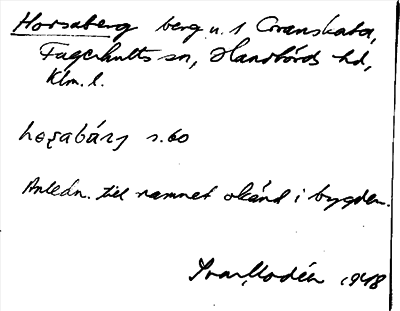 Horsaberg berg u. 1 Granskata,
Fagerhults sn, Handbörds hd,
Klm. l.
hoʂabärj s. 60
Anledn. till namnet okänd i bygden.
Ivar Modéer 1948